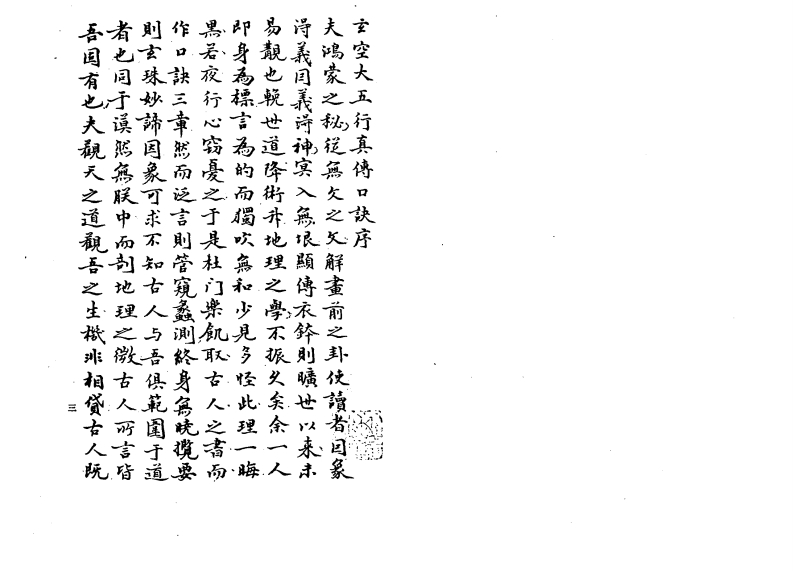 玄空大五行真傳口訣序
夫鴻蒙之秘從無文之文解畫前之卦使讀者因象
淂義因義淂神冥入無垠顯傳衣鉢則曠世以来未
易覯也輓世道降術升地理之學不振久矣余一人
即身為標言為的而獨吹無和少見多怪此理一晦
黑若夜行心竊憂之于是杜门樂飢取古人之書而
作口訣三章然而泛言則管窺蠡測終身無曉攬要
則玄珠妙諦因象可求不知古人与吾俱範圍于道
者也同于漠然無朕中而剖地理之微古人所言皆
吾固有也夫觀天之道觀吾之生機非相貸古人既
三